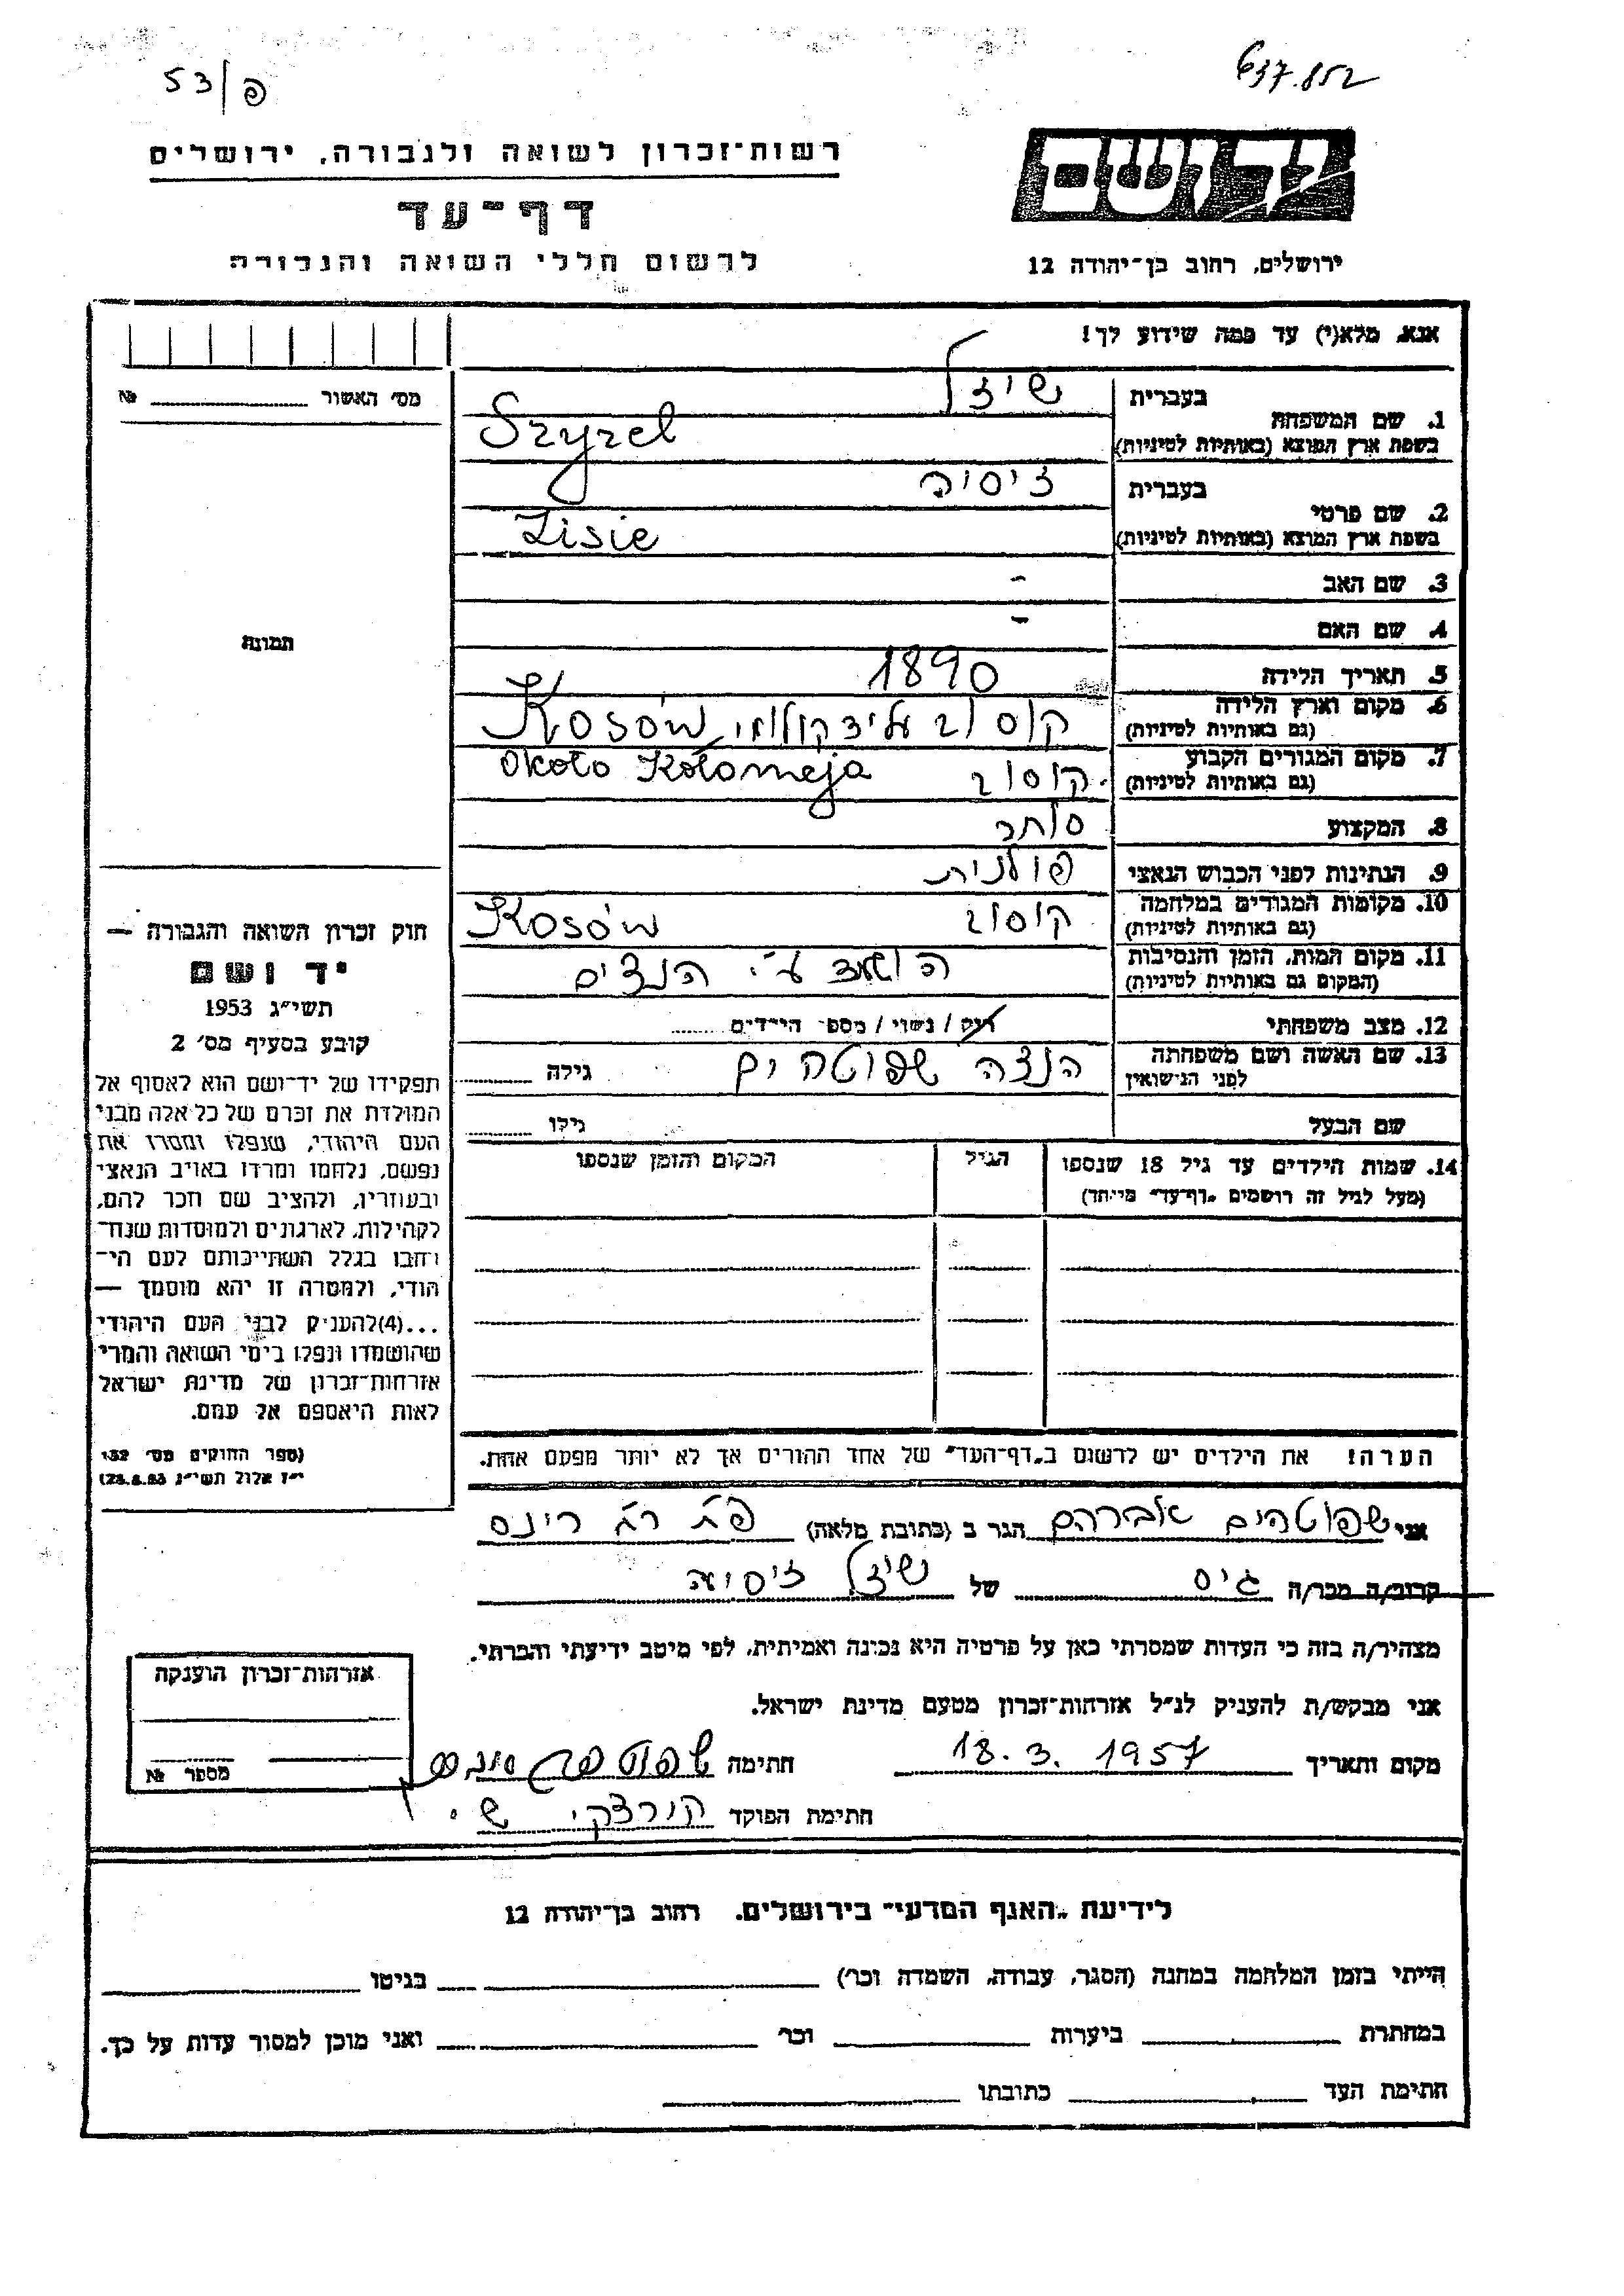 53/פ
637.852
רשות־זכרון לשואה ולגבורה, ירושלים
דף־עד
לרשום חללי השואה והגבורה
יד ושם
ירושלים, רחוב בן־יהודה 12
אנא, מלא(י) עד כמה שידוע לך!
מס׳ האשור № 
תמונה
1. שם המשפחה
בעברית שיזל
בשפת ארץ המוצא (באותיות לטיניות) Szyzel
2. שם פרטי
בעברית זיסיה
בשפת ארץ המוצא (באותיות לטיניות) Zisie
3. שם האב -
4. שם האם -
5. תאריך הלידה 1890
6. מקום וארץ הלידה
(גם באותיות לטיניות) קוסוב על יד קולומי Kosów
7. מקום המגורים הקבוע około Kołomeja
(גם באותיות לטיניות) קוסוב
8. המקצוע סוחר
9. הנתינות לפני הכבוש הנאצי פולנית
10. מקומות המגורים במלחמה
(גם באותיות לטיניות) קוסוב Kosów
11. מקום המות, הזמן והנסיבות
(המקום גם באותיות לטיניות) ע״י הנצים
12. מצב משפחתי רוק / נשוי / מספר הילדים
13. שם האשה ושם משפחתה
לפני הנישואין שפוטהים גילה
שם הבעל גילו
14. שמות הילדים עד גיל 18 שנספו
(מעל לגיל זה רושמים „דף־עד״ מיוחד)
הגיל
המקום והזמן שנספו
הערה! את הילדים יש לרשום ב„דף־העד״ של אחד ההורים אך לא יותר מפעם אחת.
חוק זכרון השואה והגבורה —
יד ושם
תשי״ג 1953
קובע בסעיף מס׳ 2
תפקידו של יד־ושם הוא לאסוף אל
המולדת את זכרם של כל אלה מבני
העם היהודי, שנפלו ומסרו את
נפשם, נלחמו ומרדו באויב הנאצי
ובעוזריו, ולהציב שם וזכר להם,
לקהילות, לארגונים ולמוסדות שנח־
רבו בגלל השתייכותם לעם הי־
הודי, ולמטרה זו יהא מוסמך —
...(4) להעניק לבני העם היהודי
שהושמדו ונפלו בימי השואה והמרי
אזרחות־זכרון של מדינת ישראל
לאות היאספם אל עמם.
(ספר החוקים מס׳ 132
י״ז אלול תשי״ג 28.8.53)
אני שפוטהים אברהם הגר ב (כתובת מלאה) פ״ת
קרוב/ה מכר/ה גיס של שיזל זיסיה
מצהיר/ה בזה כי העדות שמסרתי כאן על פרטיה היא נכונה ואמיתית, לפי מיטב ידיעתי והכרתי.
אני מבקש/ת להעניק לנ״ל אזרחות־זכרון מטעם מדינת ישראל.
מקום ותאריך 18.3.1957 חתימה
חתימת הפוקד ש.
אזרחות־זכרון הוענקה
מספר №
לידיעת „האגף המדעי״ בירושלים, רחוב בן־יהודה 12
הייתי בזמן המלחמה במחנה (הסגר, עבודה, השמדה וכר׳) בגיטו
במחתרת ביערות וכר׳ ואני מוכן למסור עדות על כך.
חתימת העד כתובתו